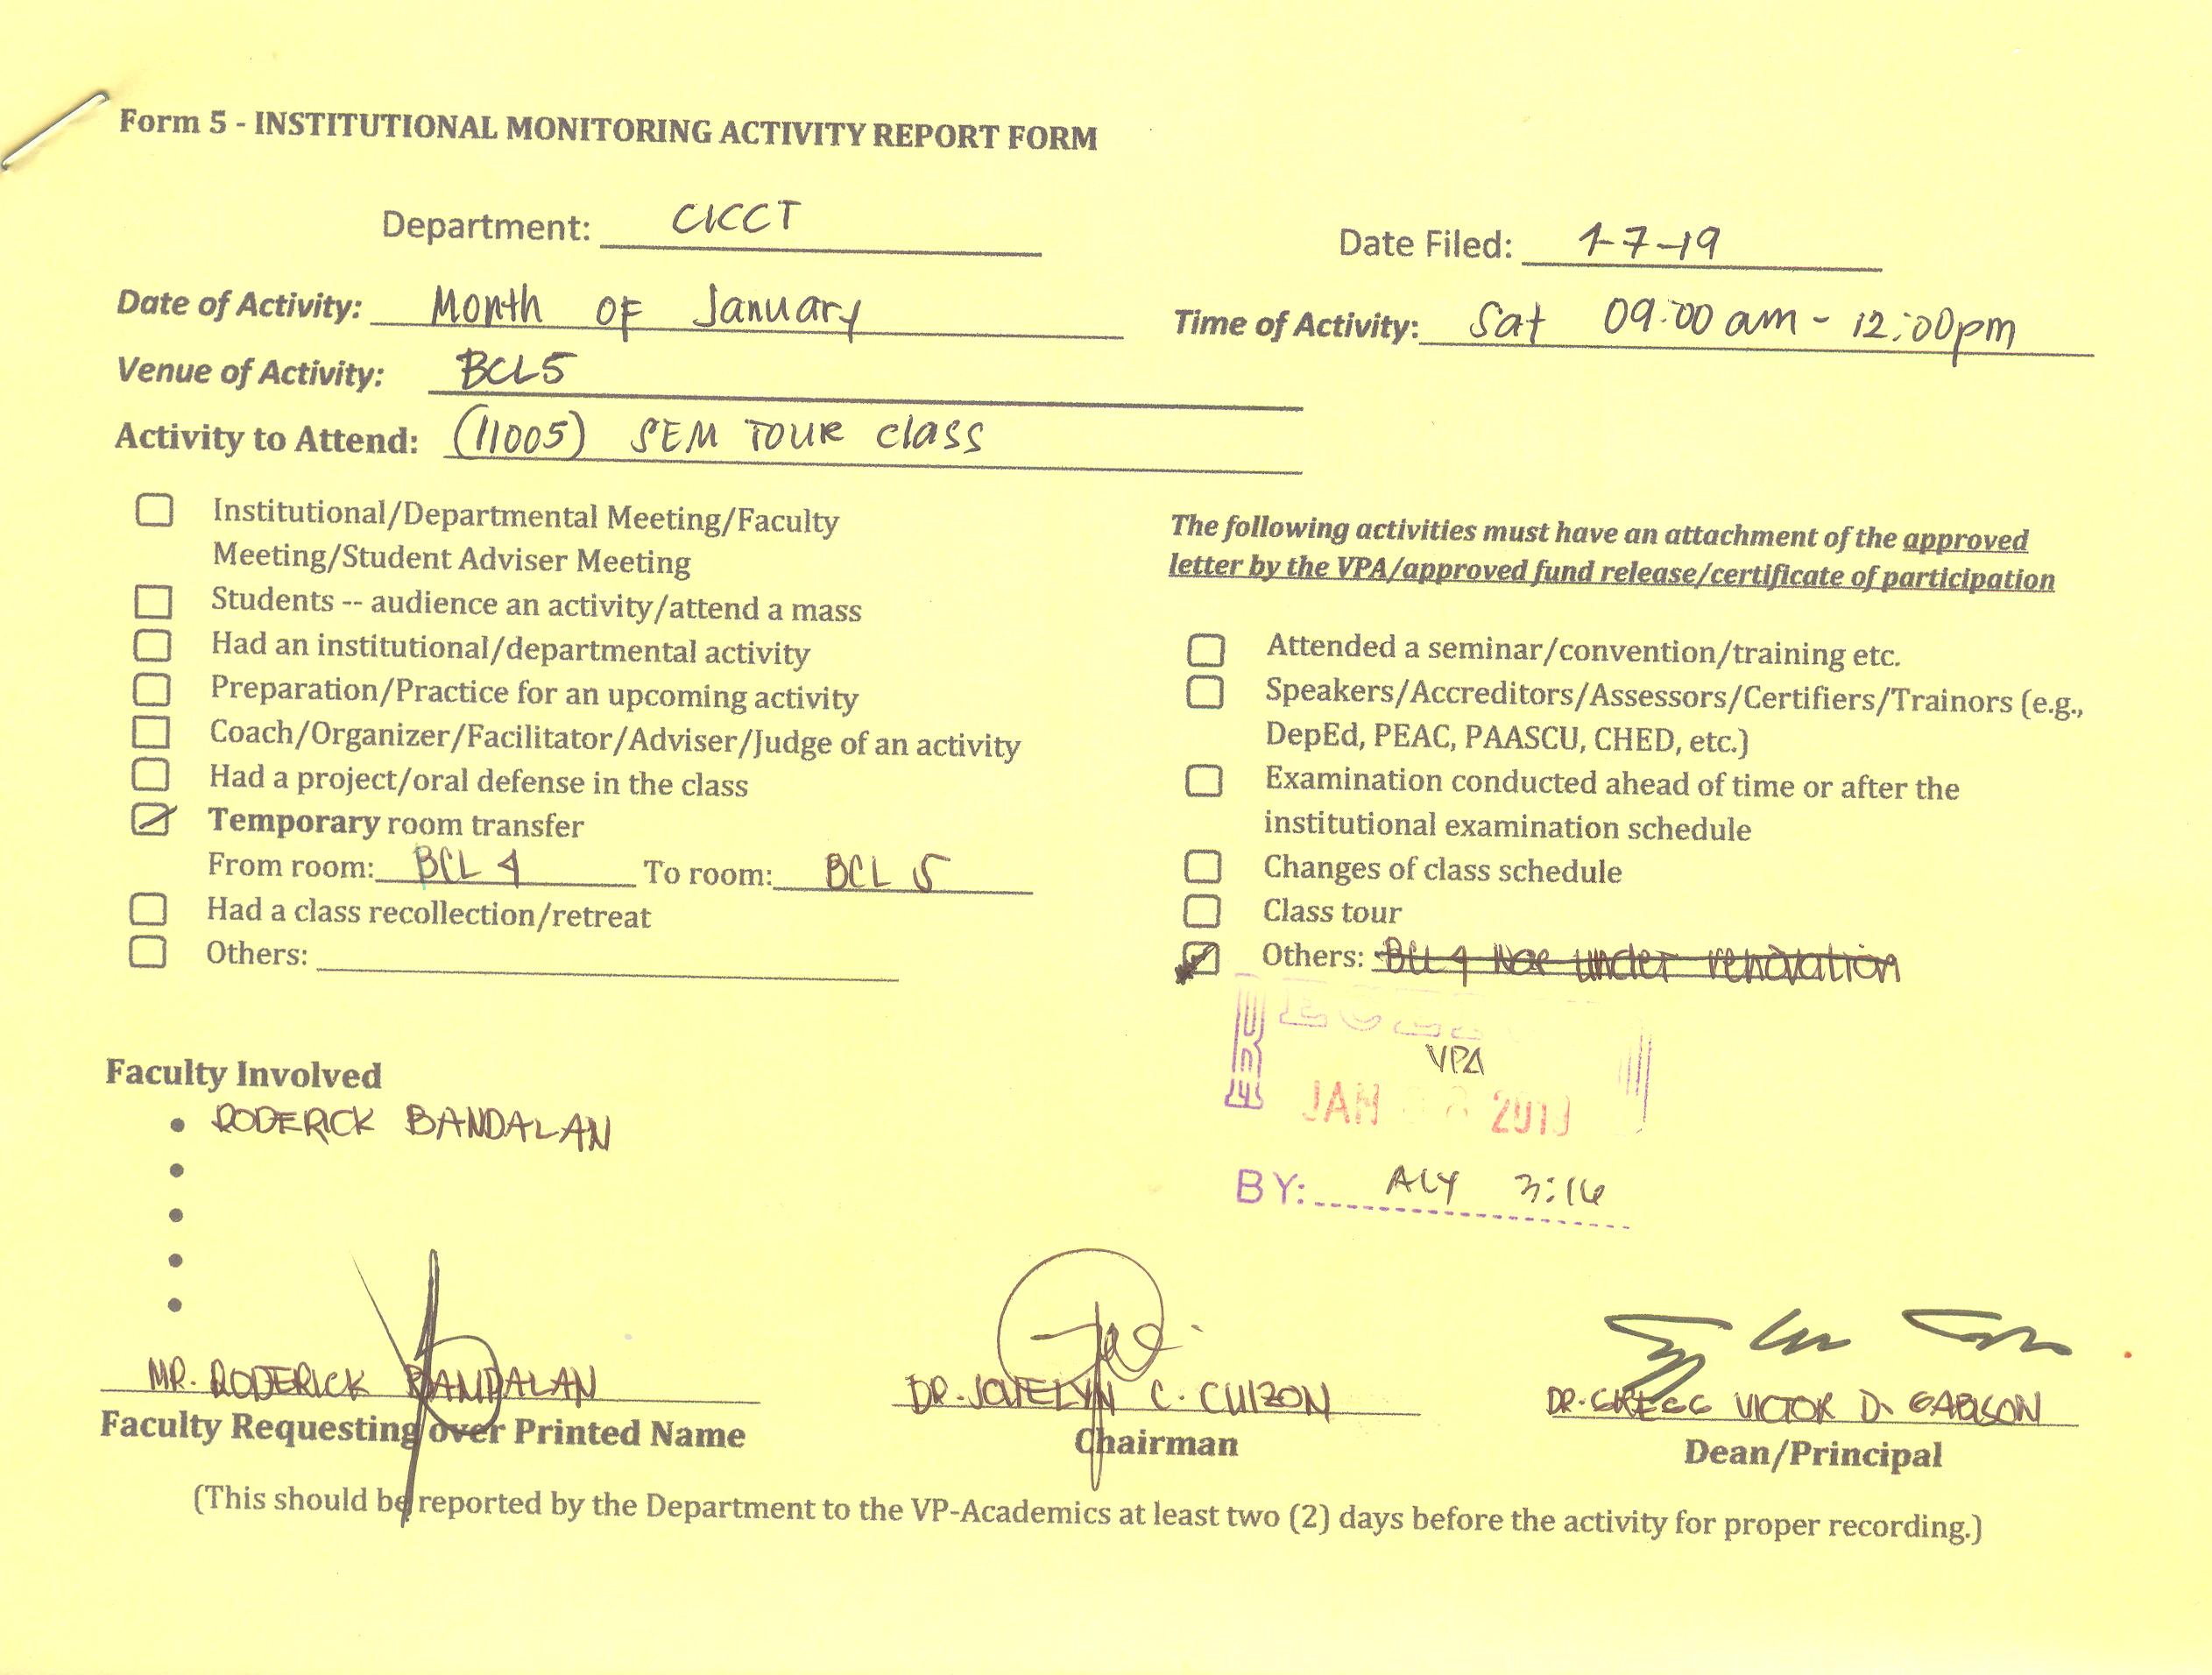 Form 5 - INSTITUTIONAL MONITORING ACTIVITY REPORT FORM
Department: CICCT
Date Filed: 1-7-19
Date of Activity: Month OF January
Time of Activity: Sat 09:00 am - 12:00pm
Venue of Activity: BCL5
Activity to Attend: (11005) SEM TOUR class
Institutional/Departmental Meeting/Faculty
Meeting/Student Adviser Meeting
Students -- audience an activity/attend a mass
Had an institutional/departmental activity
Preparation/Practice for an upcoming activity
Coach/Organizer/Facilitator/Adviser/Judge of an activity
Had a project/oral defense in the class
Temporary room transfer
From room: BCL 4 To room: BCL 5
Had a class recollection/retreat
Others:
The following activities must have an attachment of the approved
letter by the VPA/approved fund release/certificate of participation
Attended a seminar/convention/training etc.
Speakers/Accreditors/Assessors/Certifiers/Trainors (e.g.,
DepEd, PEAC, PAASCU, CHED, etc.)
Examination conducted ahead of time or after the
institutional examination schedule
Changes of class schedule
Class tour
Others: BCL 4 under renovation
VPA
JAN 2019
BY: ALY 3:16
Faculty Involved
• RODERICK BANDALAN
•
•
•
•
MR. RODERICK BANDALAN
Faculty Requesting over Printed Name
DR. JOVELYN C. CUIZON
Chairman
DR. GREGG VICTOR D. GABISON
Dean/Principal
(This should be reported by the Department to the VP-Academics at least two (2) days before the activity for proper recording.)